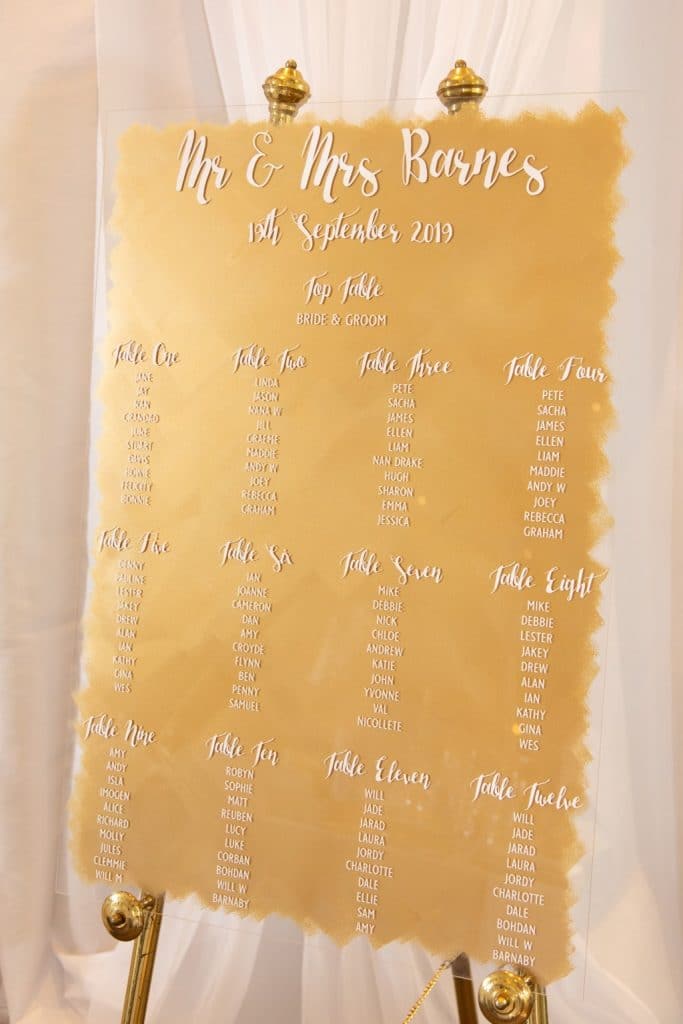 Mr & Mrs Barnes
19th September 2019
Top Table
BRIDE & GROOM
Table One
JANE
JAY
NAN
GRANDAD
JUNE
STUART
HONNIE
FELICITY
BONNIE
Table Two
LINDA
JASON
NANA W
JILL
GRAEME
MADDIE
ANDY W
JOEY
REBECCA
GRAHAM
Table Three
PETE
SACHA
JAMES
ELLEN
LIAM
NAN DRAKE
HUGH
SHARON
EMMA
JESSICA
Table Four
PETE
SACHA
JAMES
ELLEN
LIAM
MADDIE
ANDY W
JOEY
REBECCA
GRAHAM
Table Five
PAULINE
LESTER
JAKEY
DREW
ALAN
IAN
KATHY
GINA
WES
Table Six
IAN
JOANNE
CAMERON
DAN
AMY
CROYDE
FLYNN
BEN
PENNY
SAMUEL
Table Seven
MIKE
DEBBIE
NICK
CHLOE
ANDREW
KATIE
JOHN
YVONNE
VAL
NICOLLETE
Table Eight
MIKE
DEBBIE
LESTER
JAKEY
DREW
ALAN
IAN
KATHY
GINA
WES
Table Nine
AMY
ANDY
ISLA
IMOGEN
ALICE
RICHARD
MOLLY
JULES
CLEMMIE
WILL M
Table Ten
ROBYN
SOPHIE
MATT
REUBEN
LUCY
LUKE
CORBAN
BOHDAN
WILL W
BARNABY
Table Eleven
WILL
JADE
JARAD
LAURA
JORDY
CHARLOTTE
DALE
ELLIE
SAM
AMY
Table Twelve
WILL
JADE
JARAD
LAURA
JORDY
CHARLOTTE
DALE
BOHDAN
WILL W
BARNABY